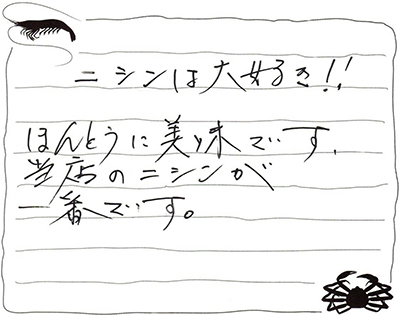 ニシンは大好き!!
ほんとうに美味です.
当店のニシンが
一番です。